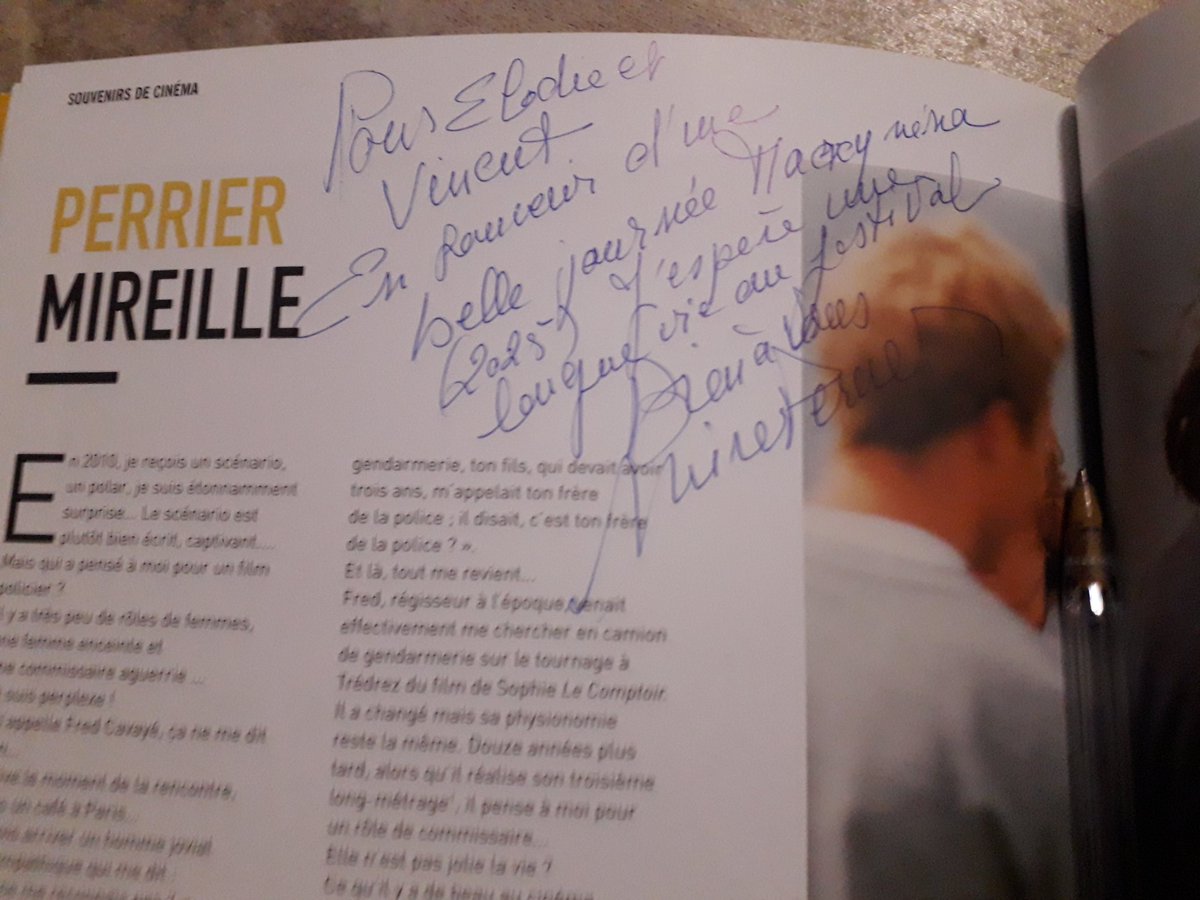 SOUVENIRS DE CINÉMA
Pour Elodie et
Vincent
En souvenir d'une
belle journée
(2025) J'espère une
longue vie au festival
Bien à vous
PERRIER
MIREILLE
En 2010, je reçois un scénario,
un polar, je suis étonnamment
surprise... Le scénario est
plutôt bien écrit, captivant....
Mais qui a pensé à moi pour un film
policier ?
y a très peu de rôles de femmes,
femme enceinte et
commissaire aguerrie ...
suis perplexe !
appelle Fred Cavayé, ça ne me dit
le moment de la rencontre,
un café à Paris...
arriver un homme jovial
qui me dit :
gendarmerie, ton fils, qui devait avoir
trois ans, m'appelait ton frère
de la police ; il disait, c'est ton frère
de la police ? ».
Et là, tout me revient...
Fred, régisseur à l'époque, venait
effectivement me chercher en camion
de gendarmerie sur le tournage à
Trédrez du film de Sophie Le Comptoir.
Il a changé mais sa physionomie
reste la même. Douze années plus
tard, alors qu'il réalise son troisième
long-métrage*, il pense à moi pour
un rôle de commissaire...
Elle n'est pas jolie la vie ?
Ce qu'il y a de beau au cinéma